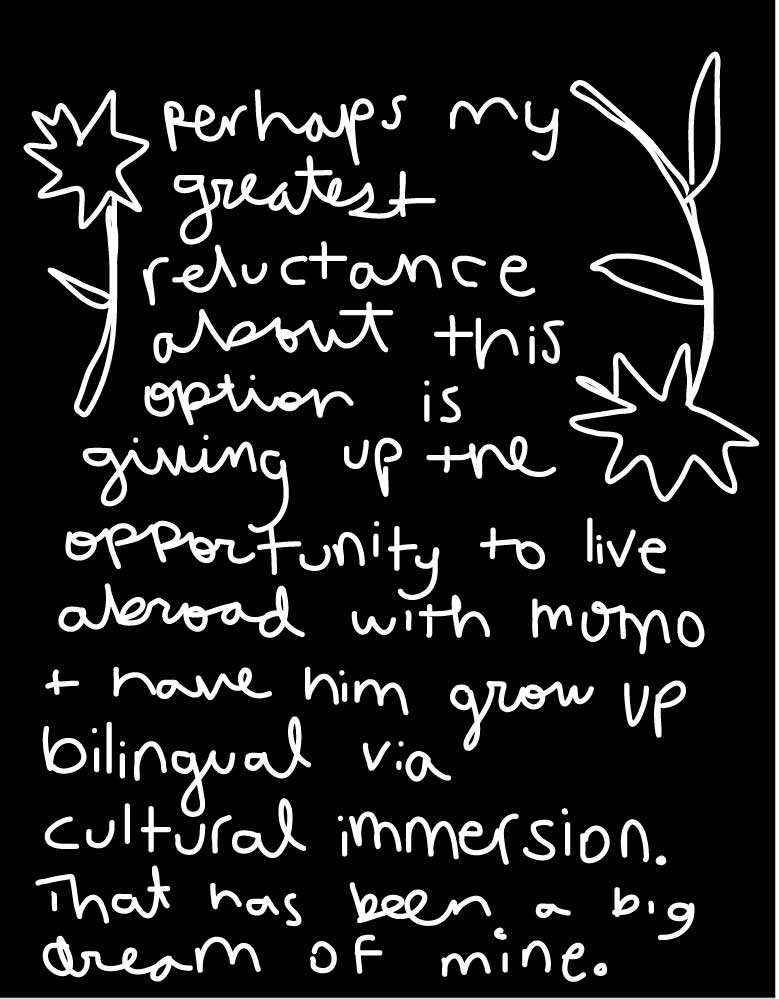 perhaps my
greatest
reluctance
about this
option is
giving up the
opportunity to live
abroad with momo
+ have him grow up
bilingual via
cultural immersion.
That has been a big
dream of mine.